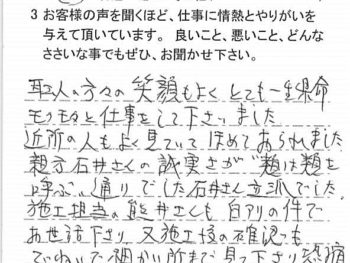 3 お客様の声を聞くほど、仕事に情熱とやりがいを
与えて頂いています。良いこと、悪いこと、どんな
ささいな事でもぜひ、お聞かせ下さい。
職人の方々の笑顔もよくとても一生懸命
モクモクと仕事をして下さいました
近所の人もよく見ていてほめておられました
親方石井さんの誠実さが"類は類を
呼ぶ"通りでした石井さん立派でした。
施工担当の熊井さんも白アリの件で
お世話下り 又施工後の確認も
でいねいで細かい所まで見て下り